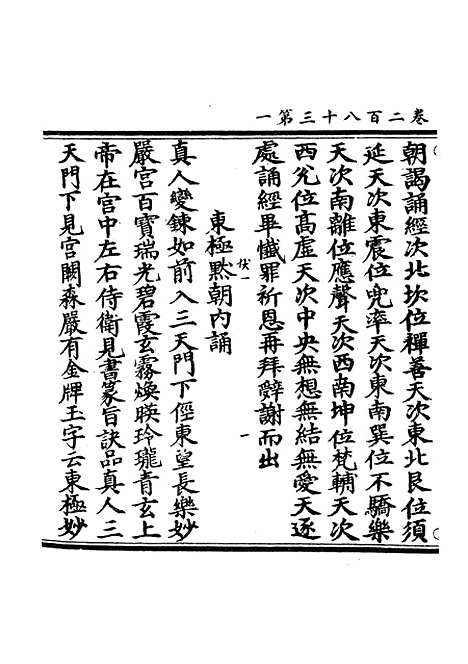 一第三十八百二卷
朝謁誦經次北坎位禪善天次東北艮位須
延天次東震位兜率天次東南巽位不驕樂
天次南離位應聲天次西南坤位梵輔天次
西兌位高虛天次中央無想無結無愛天逐
處誦經畢懺罪祈恩再拜辭謝而出
東極默朝內誦
伏一
一
真人變鍊如前入三天門下徑東望長樂妙
嚴宮百寶瑞光碧霞玄霧煥暎玲瓏青玄上
帝在宮中左右侍衛見書篆旨訣品真人三
天門下見宮闕森嚴有金牌玉字云東極妙